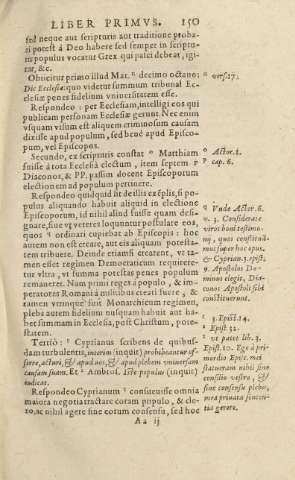 LIBER PRIMVS. 150
sed neque aut scripturis aut traditione proba-
ri potest à Deo habere sed semper in scriptu-
ris populus vocatur Grex qui pasci debeat, igi-
tur, &c.
Obijcitur primo illud Mat. º decimo octauo:
Dic Ecclesiæ: quo videtur summum tribunal Ec-
clesiæ penes fidelium vniuersitatem esse.
Respondeo: per Ecclesiam, intelligi eos qui
publicam personam Ecclesiæ gerunt. Nec enim
vsquam visum est aliquem criminosum causam
dixisse apud populum, sed bene apud Episco-
pum, vel Episcopos.
Secundo, ex scripturis constat º Matthiam
fuisse à tota Ecclesia electum, item septem p
Diaconos, & PP. passim docent Episcoporum
electionem ad populum pertinere.
Respondeo quidquid sit de illis exēplis, si po-
pulus aliquando habuit aliquid in electione
Episcoporum, id nihil aliud fuisse quam desi-
gnare, siue vt veteres loquuntur postulare eos,
quos q ordinari cupiebat ab Episcopis: hoc
autem non est creare, aut eis aliquam potesta-
tem tribuere. Deinde etiamsi crearent, vt ta-
men esset regimen Democraticum requirere-
tur vltra, vt summa potestas penes populum
remaneret. Nam primi reges à populo, & im-
peratores Romani à militibus creati fuere, &
tamen vtrumque fuit Monarchicum regimen,
plebs autem fidelium nusquam habuit aut ha-
bet summam in Ecclesia, post Christum, pote-
statem.
Tertiò: r Cyprianus scribens de quibus-
dam turbulentis, interim (inquit) prohibeantur of-
ferre, acturi, & apud nos, & apud plebem vniuersam
causam suam. Et s Ambros. Iste populus (inquit)
iudicat.
Respondeo Cyprianum t consueuisse omnia
maiora negotia tractare coram populo, & cle-
ro, ac nihil agere sine eorum consensu, sed hoc
Aa ij
º vers. 17.
º Actor. 1.
p cap. 6.
q Vnde Actor. 6.
v. 3. Considerate
viros boni testimo-
nij, quos constitua-
mus super hoc opus,
& Cyprian. 3. epist.
9. Apostolos Do-
minus elegit, Dia-
conos Apostoli sibi
constituerunt.
r 3. Epist. 14.
s Epist. 32.
t vt patet lib. 3.
Epist. 10. Ego à pri-
mordio Episc. mei
statuerem nihil sine
consilio vestro, &
sine consensu plebis,
mea priuata senten-
tia gerere.